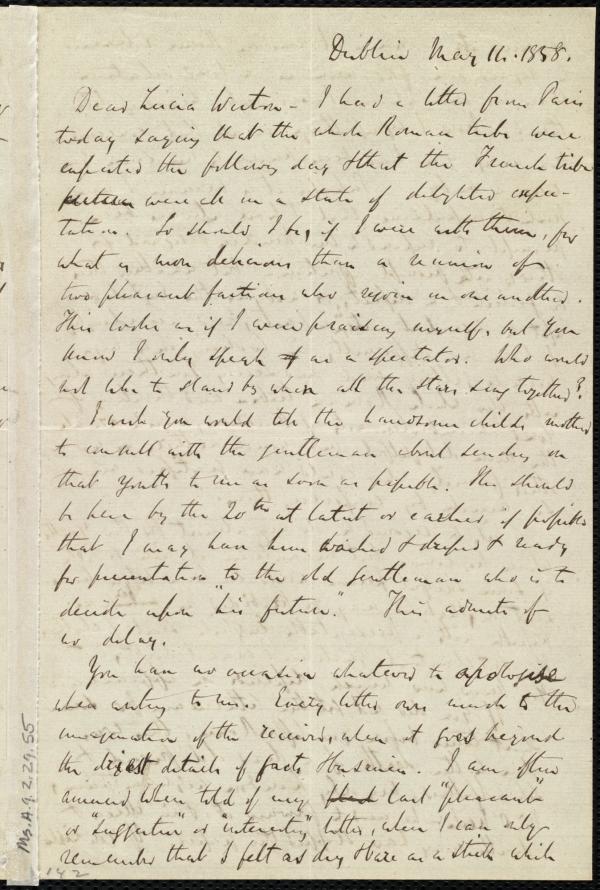 Dublin May 11. 1858.
Dear Lucia Weston - I had a letter from Paris
today saying that the whole Roman tribe were
expected the following day & that the French tribe
were all in a state of delighted expec-
tation. So should I be, if I were with them, for
what is more delicious than a reunion of
two pleasant factions who rejoice in one another.
This looks as if I were praising myself, but you
know I only speak as a spectator. Who would
not like to stand by when all the stars sing together?
I wish you would tell the handsome child's mother
to consult with the gentleman about sending on
that youth to me as soon as possible. He should
be here by the 20th at latest or earlier if possible
that I may have him washed & dressed & ready
for presentation to the old gentleman who is to
decide upon "his future". This admits of
no delay.
You have no occasion whatever to apologise
when writing to me. Every letter owes much to the
imagination of the receiver, when it goes beyond
the driest details of facts &
. I am often
amused when told of my last "pleasant"
or "suggestive" or "interesting" letter, when I can only
remember that I felt as dry & bare as a stick while
Ms.A.9.2.29.55
142